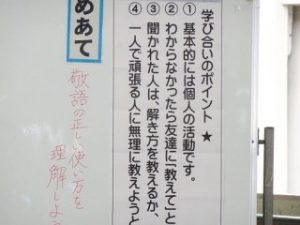 学び合いのポイント ★
① 基本的には個人の活動です。
② わからなかったら友達に「教えて」と
③ 聞かれた人は、解き方を教えるか、
④ 一人で頑張る人に無理に教えようと
めあて
敬語の正しい使い方を
理解しよう